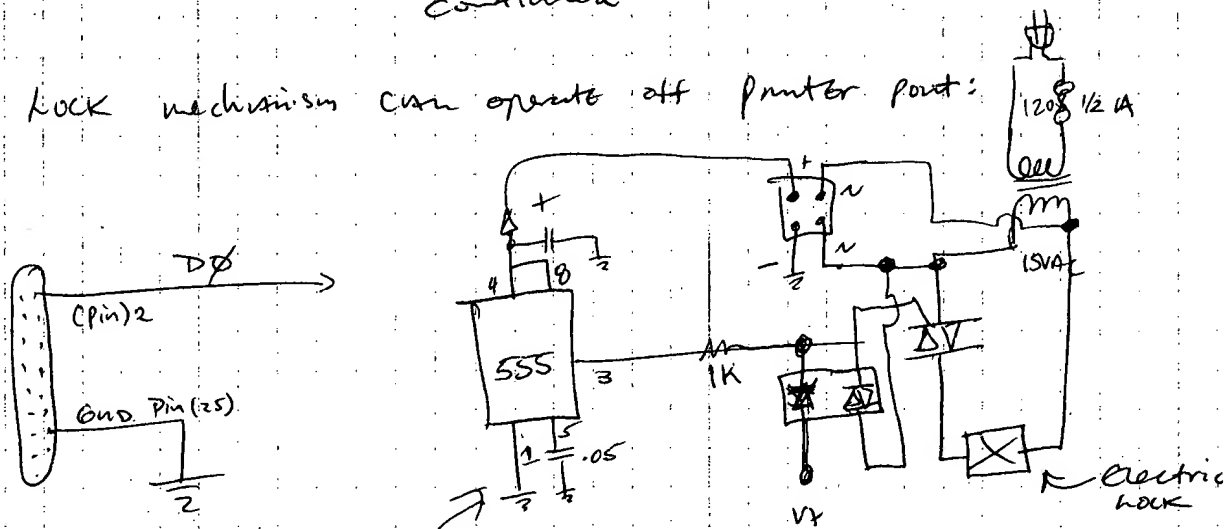 Continued
Lock mechanism can operate off printer port:
120V 1/2 A
+
+ ~
- ~
15VAC
DØ
(Pin) 2
GND Pin (25)
4 8
555
3
1K
1 5
.05
V+
Electric
Lock